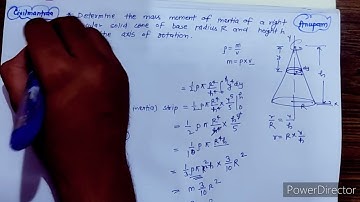 Civilmantra
* Determine the mass moment of inertia of a right
solid cone of base radius R and height h
the axis of rotation.
Anupam
ρ = m/v
m = ρ × v
inertia) strip = 1/2 ρ π R⁴/h⁴ ∫ y⁴ dy
= 1/2 ρ π R⁴/h⁴ × y⁵/5
= 1/2 ρ π R⁴/h⁴ × h⁵/5
= 1/10 ρ π R⁴ h
= 1/3 ρ π R² h × 3/10 R²
= m 3/10 R²
r/R = y/h
r = R × y/h
PowerDirector